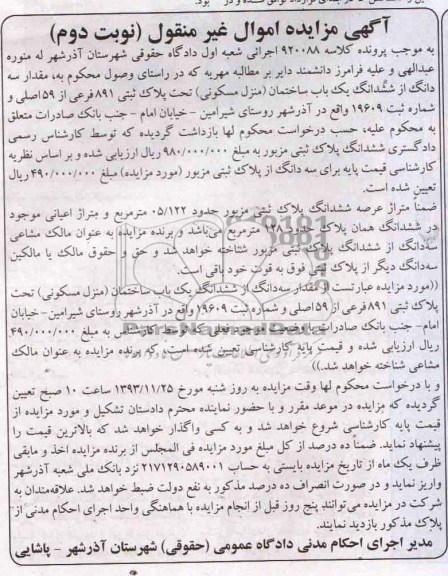 آگهی مزایده اموال غیر منقول (نوبت دوم)
به موجب پرونده کلاسه ۹۲۰۰۸۸ اجرائی شعبه اول دادگاه حقوقی شهرستان آذرشهر له منوره
عبدالهی و علیه فرامرز دانشمند دایر بر مطالبه مهریه که در راستای وصول محکوم به، مقدار سه
دانگ از ششدانگ یک باب ساختمان (منزل مسکونی) تحت پلاک ثبتی ۸۹۱ فرعی از ۵۹ اصلی و
شماره ثبت ۱۹۶۰۹ واقع در آذرشهر روستای شیرامین - خیابان امام - جنب بانک صادرات متعلق
به محکوم علیه، حسب درخواست محکوم لها بازداشت گردیده که توسط کارشناس رسمی
دادگستری ششدانگ پلاک ثبتی مزبور به مبلغ ۹۸۰/۰۰۰/۰۰۰ ریال ارزیابی شده و بر اساس نظریه
کارشناسی قیمت پایه برای سه دانگ از پلاک ثبتی مزبور (مورد مزایده) مبلغ ۴۹۰/۰۰۰/۰۰۰ ریال
تعیین شده است.
ضمناً متراژ عرصه ششدانگ پلاک ثبتی مزبور حدود ۰۵/۱۲۲ مترمربع و متراژ اعیانی موجود
در ششدانگ همان پلاک حدود ۱۲۸ مترمربع می‌باشد و برنده مزایده به عنوان مالک مشاعی
سه‌دانگ از ششدانگ پلاک ثبتی مزبور شناخته خواهد شد و حق و حقوق مالک یا مالکین
سه‌دانگ دیگر از پلاک ثبتی فوق به قوت خود باقی است.
((مورد مزایده عبارتست از مقدار سه‌دانگ از ششدانگ یک باب ساختمان (منزل مسکونی) تحت
پلاک ثبتی ۸۹۱ فرعی از ۵۹ اصلی و شماره ثبت ۱۹۶۰۹ واقع در آذرشهر روستای شیرامین- خیابان
امام- جنب بانک صادرات با وضعیت موجود فعلی که توسط کارشناس به مبلغ ۴۹۰/۰۰۰/۰۰۰
ریال ارزیابی شده و قیمت پایه کارشناسی تعیین شده است، که برنده مزایده به عنوان مالک
مشاعی شناخته خواهد شد.))
و با درخواست محکوم لها وقت مزایده به روز شنبه مورخ ۱۳۹۳/۱۱/۲۵ ساعت ۱۰ صبح تعیین
گردیده که مزایده در موعد مقرر و با حضور نماینده محترم دادستان تشکیل و مورد مزایده از
قیمت پایه کارشناسی شروع خواهد شد و به کسی واگذار خواهد شد که بالاترین قیمت را
پیشنهاد نماید. ضمناً ده درصد از کل مبلغ مورد مزایده فی المجلس از برنده مزایده اخذ و مابقی
ظرف یک ماه از تاریخ مزایده بایستی به حساب ۲۱۷۱۲۹۰۵۸۹۰۰۱ نزد بانک ملی شعبه آذرشهر
واریز نماید و در صورت انصراف ده درصد مذکور به نفع دولت ضبط خواهد شد. علاقه‌مندان به
شرکت در مزایده می‌توانند پنج روز قبل از انجام مزایده با هماهنگی واحد اجرای احکام مدنی از
پلاک مذکور بازدید نمایند.
مدیر اجرای احکام مدنی دادگاه عمومی (حقوقی) شهرستان آذرشهر - پاشایی